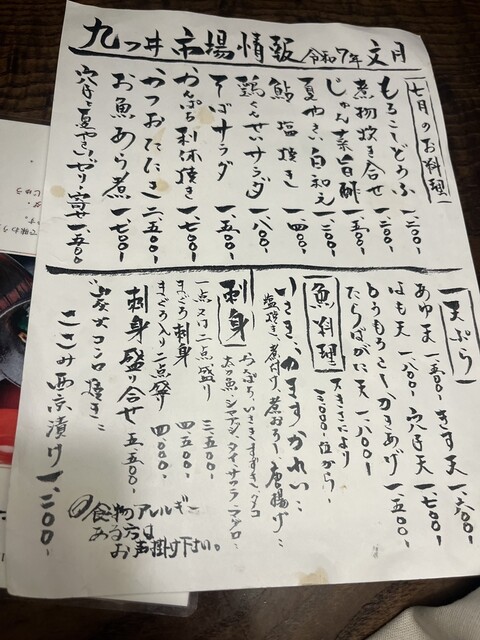 九つ井 市場情報 令和7年 文月
七月のお料理
もろこしどうふ 一、二〇〇-
煮物炊き合せ 一、二〇〇-
じゅん菜 旨酢 一、五〇〇-
夏やさい白和え 一、二〇〇-
鮎 塩焼き 一、四〇〇-
鶏くんせいサラダ 一、八〇〇-
そばサラダ 一、五〇〇-
かんぱち利休焼き 一、七〇〇-
かつおたたき 二、五〇〇-
お魚あら煮 一、七〇〇-
穴子と夏やさいゼリー寄せ 一、五〇〇
天ぷら
きす天 一、六〇〇-
あゆ天 一、五〇〇-
穴子天 一、七〇〇-
はも天 一、八〇〇-
とうもろこしかきあげ 一、五〇〇-
たらばがに天 一、八〇〇-
魚料理
大きさにより
三〇〇〇-位から-
いさき、かますかれい、
塩焼き、煮付け、煮おろし、唐揚げ
刺身
かんぱち、いさき、すずき、タコ
太刀魚・シマアジ・タイ・サワラ・マグロ
一点又は二点盛り 三、五〇〇-
まぐろ刺身 四、五〇〇
まぐろ入り二点盛り 四、〇〇〇
刺身盛り合せ 五、五〇〇-
コンロ焼き
ささみ西京漬け 一、二〇〇-
食物アレルギー
ある方は
お声掛け下さい。